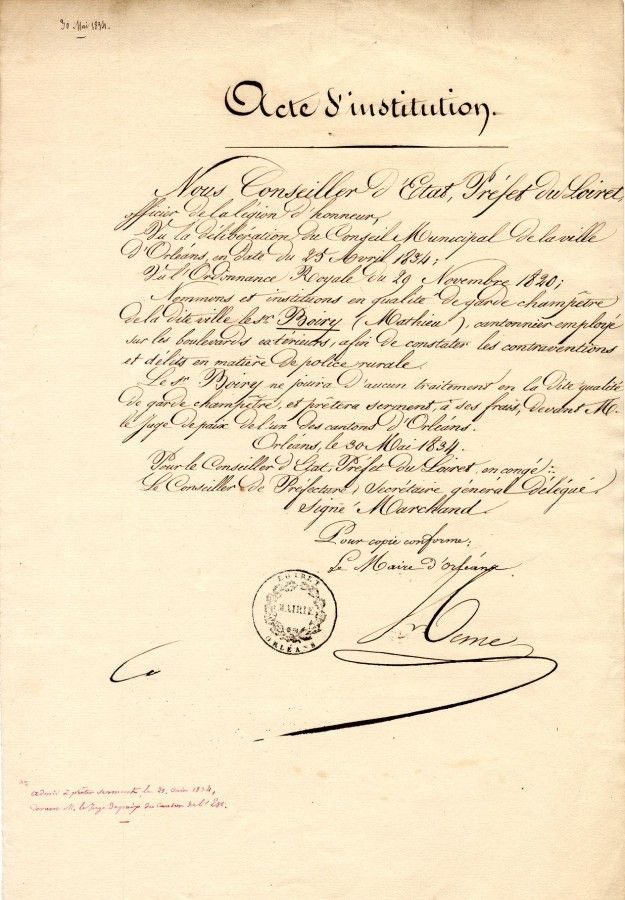 30 Mai 1834.
Acte d'institution.
Nous Conseiller d'Etat, Préfet du Loiret,
officier de la légion d'honneur,
Vu la délibération du Conseil Municipal de la ville
d'Orléans, en date du 25 Avril 1834;
Vu l'Ordonnance Royale du 29 Novembre 1820;
Nommons et instituons en qualité de garde champêtre
de la dite ville le Sr. Boiry (Mathieu), cantonnier employé
sur les boulevards extérieurs, afin de constater les contraventions
et délits en matière de police rurale.
Le Sr. Boiry ne jouira d'aucun traitement en la dite qualité
de garde champêtre, et prêtera serment, à ses frais, devant M.
le Juge de paix de l'un des cantons d'Orléans.
Orléans, le 30 Mai 1834.
Pour le Conseiller d'Etat, Préfet du Loiret, en congé:
Le Conseiller de Préfecture, Secrétaire général délégué.
Signé Marchand.
Pour copie conforme:
Le Maire d'Orléans
LOIRET
MAIRIE
ORLÉANS
admis à prêter serment le 21 Juin 1834,
devant M. le Juge de paix du canton de l'Est.